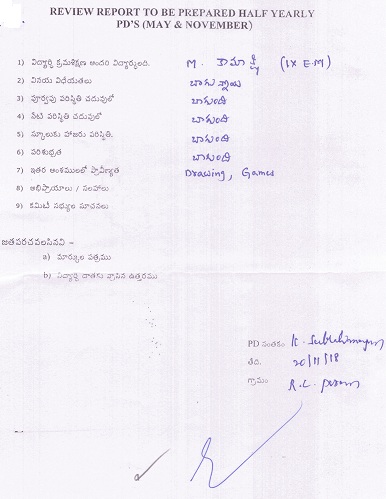 REVIEW REPORT TO BE PREPARED HALF YEARLY
PD'S (MAY & NOVEMBER)
1) విద్యార్థి క్రమశిక్షణ అందరి విద్యార్థులది. M. కామాక్షి (IX E.M)
2) వినయ విధేయతలు బాగున్నాయి
3) పూర్వపు పరిస్థితి చదువులో బాగుంది
4) నేటి పరిస్థితి చదువులో బాగుంది
5) స్కూలుకు హాజరు పరిస్థితి. బాగుంది
6) పరిశుభ్రత బాగుంది
7) ఇతర అంశములలో ప్రావీణ్యత Drawing, Games
8) అభిప్రాయాలు / సలహాలు
9) కమిటీ సభ్యుల సూచనలు
జతపరచవలసినవి –
a) మార్కుల పత్రము
b) విద్యార్థి దాతకు వ్రాసిన ఉత్తరము
PD సంతకం K.
తేది. 20/11/18
గ్రామం R.C. puram